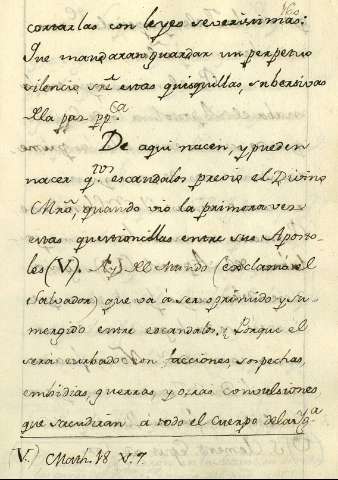 cortarlas con leyes severisimas:
Que mandaran guardar un perpetuo
silencio sre. estas quisquillas, subersivas
dla paz ppca.
De aqui nacen, y pueden
nacer qtos. escandalos previo el Divino
Mro, quando vio la primera vez
estas questioncillas entre sus Aposto-
les (V). Ay! del mundo (exclamó el
Salvador) que va á ser oprimido y su-
mergido entre escandalos, y Porque el
será turbado con facciones, sospechas,
embidias, guerras, y otras convulsiones
que sacudirán á todo el Cuerpo dela Yga.
(V.) Math. 18 v. 7.